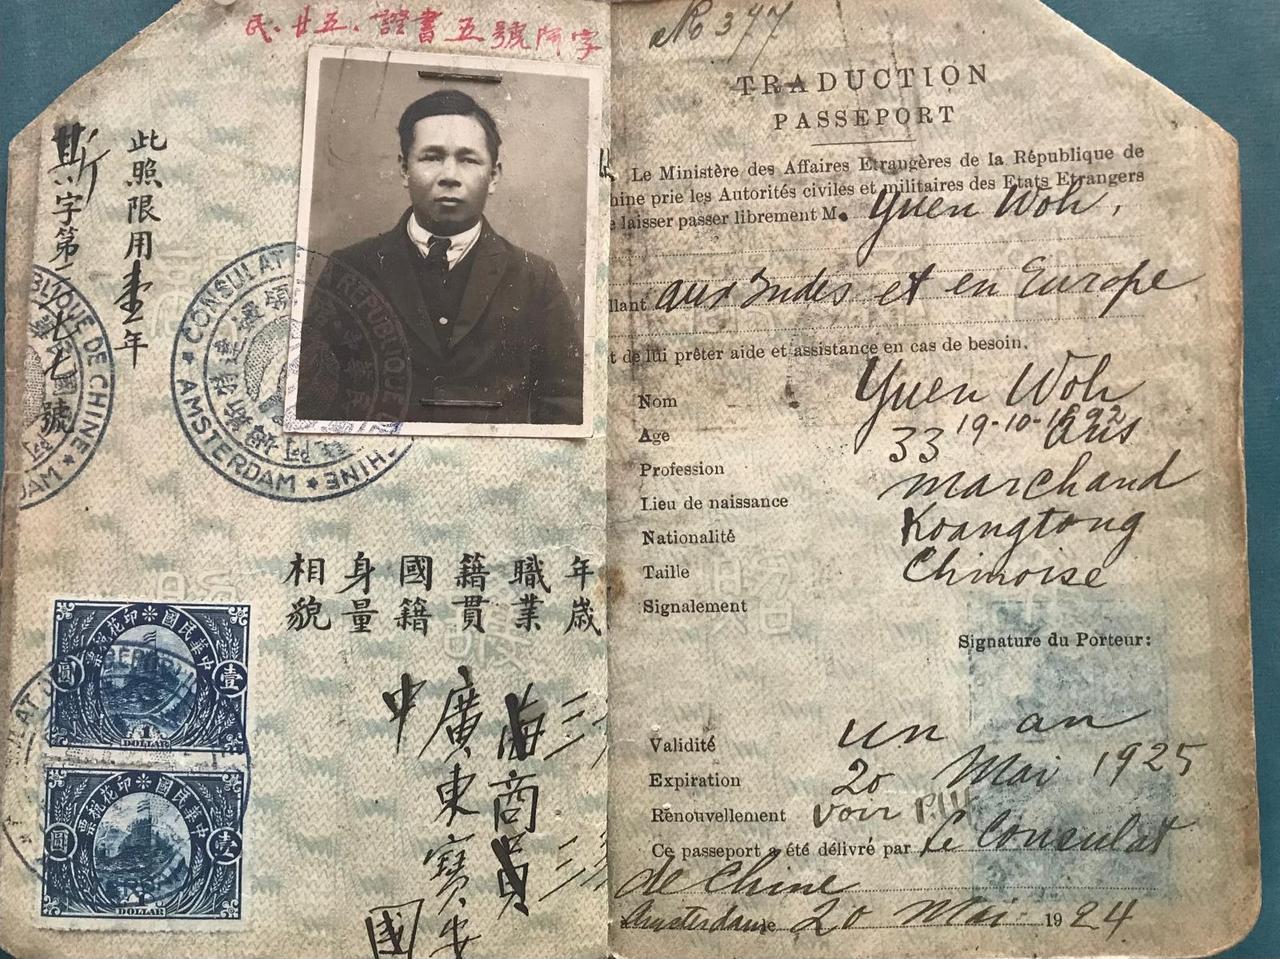 民·廿五·證書五號阿字
此照限用壹年
斯字第一七七號
CONSULAT DE LA RÉPUBLIQUE DE CHINE
AMSTERDAM
BLIQUE DE CHINE
年歲
職業
籍貫
國籍
身量
相貌
三
商
廣東寶安
中國
中華民國印花稅票
壹圓
1
DOLLAR
中華民國印花稅票
壹圓
1
DOLLAR
No 377
TRADUCTION
PASSEPORT
Le Ministère des Affaires Etrangères de la République de
hine prie les Autorités civiles et militaires des Etats Etrangers
e laisser passer librement M. Yuen Woh,
llant aux Indes et en Europe
t de lui prêter aide et assistance en cas de besoin.
Nom Yuen Woh
Age 33 ans 19-10-1892
Profession marchand
Lieu de naissance Koangtong
Nationalité Chinoise
Taille
Signalement
Signature du Porteur:
Validité un an
Expiration 20 Mai 1925
Renouvellement voir P.
Ce passeport a été délivré par le Consulat
de Chine
Amsterdam le 20 Mai 1924